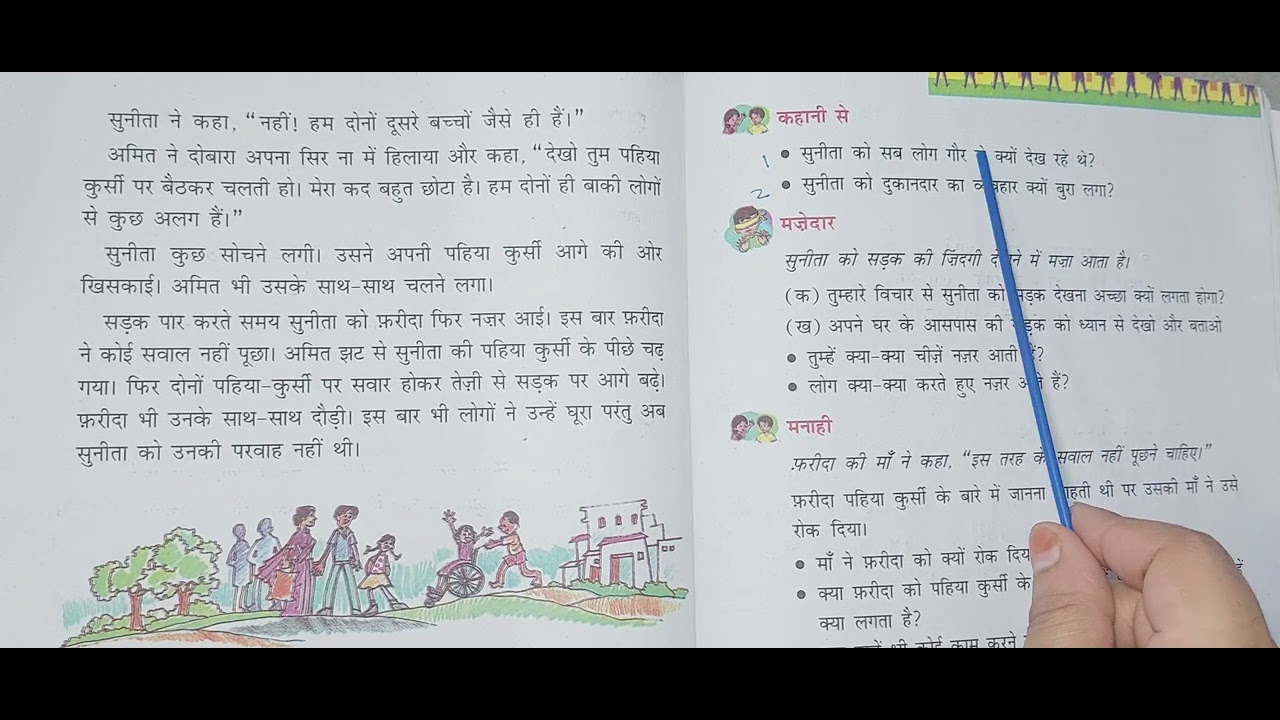 सुनीता ने कहा, “नहीं! हम दोनों दूसरे बच्चों जैसे ही हैं।”
अमित ने दोबारा अपना सिर ना में हिलाया और कहा, “देखो तुम पहिया
कुर्सी पर बैठकर चलती हो। मेरा कद बहुत छोटा है। हम दोनों ही बाकी लोगों
से कुछ अलग हैं।”
सुनीता कुछ सोचने लगी। उसने अपनी पहिया कुर्सी आगे की ओर
खिसकाई। अमित भी उसके साथ-साथ चलने लगा।
सड़क पार करते समय सुनीता को फ़रीदा फिर नज़र आई। इस बार फ़रीदा
ने कोई सवाल नहीं पूछा। अमित झट से सुनीता की पहिया कुर्सी के पीछे चढ़
गया। फिर दोनों पहिया-कुर्सी पर सवार होकर तेज़ी से सड़क पर आगे बढ़े।
फ़रीदा भी उनके साथ-साथ दौड़ी। इस बार भी लोगों ने उन्हें घूरा परंतु अब
सुनीता को उनकी परवाह नहीं थी।
कहानी से
1 • सुनीता को सब लोग गौर क्यों देख रहे थे?
2 • सुनीता को दुकानदार का व्यवहार क्यों बुरा लगा?
मज़ेदार
सुनीता को सड़क की ज़िंदगी देखने में मज़ा आता है।
(क) तुम्हारे विचार से सुनीता को सड़क देखना अच्छा क्यों लगता होगा?
(ख) अपने घर के आसपास की सड़क को ध्यान से देखो और बताओ
• तुम्हें क्या-क्या चीज़ें नज़र आती हैं?
• लोग क्या-क्या करते हुए नज़र आते हैं?
मनाही
फ़रीदा की माँ ने कहा, “इस तरह के सवाल नहीं पूछने चाहिए।”
फ़रीदा पहिया कुर्सी के बारे में जानना चाहती थी पर उसकी माँ ने उसे
रोक दिया।
• माँ ने फ़रीदा को क्यों रोक
• क्या फ़रीदा को पहिया कुर्सी के
क्या लगता है?